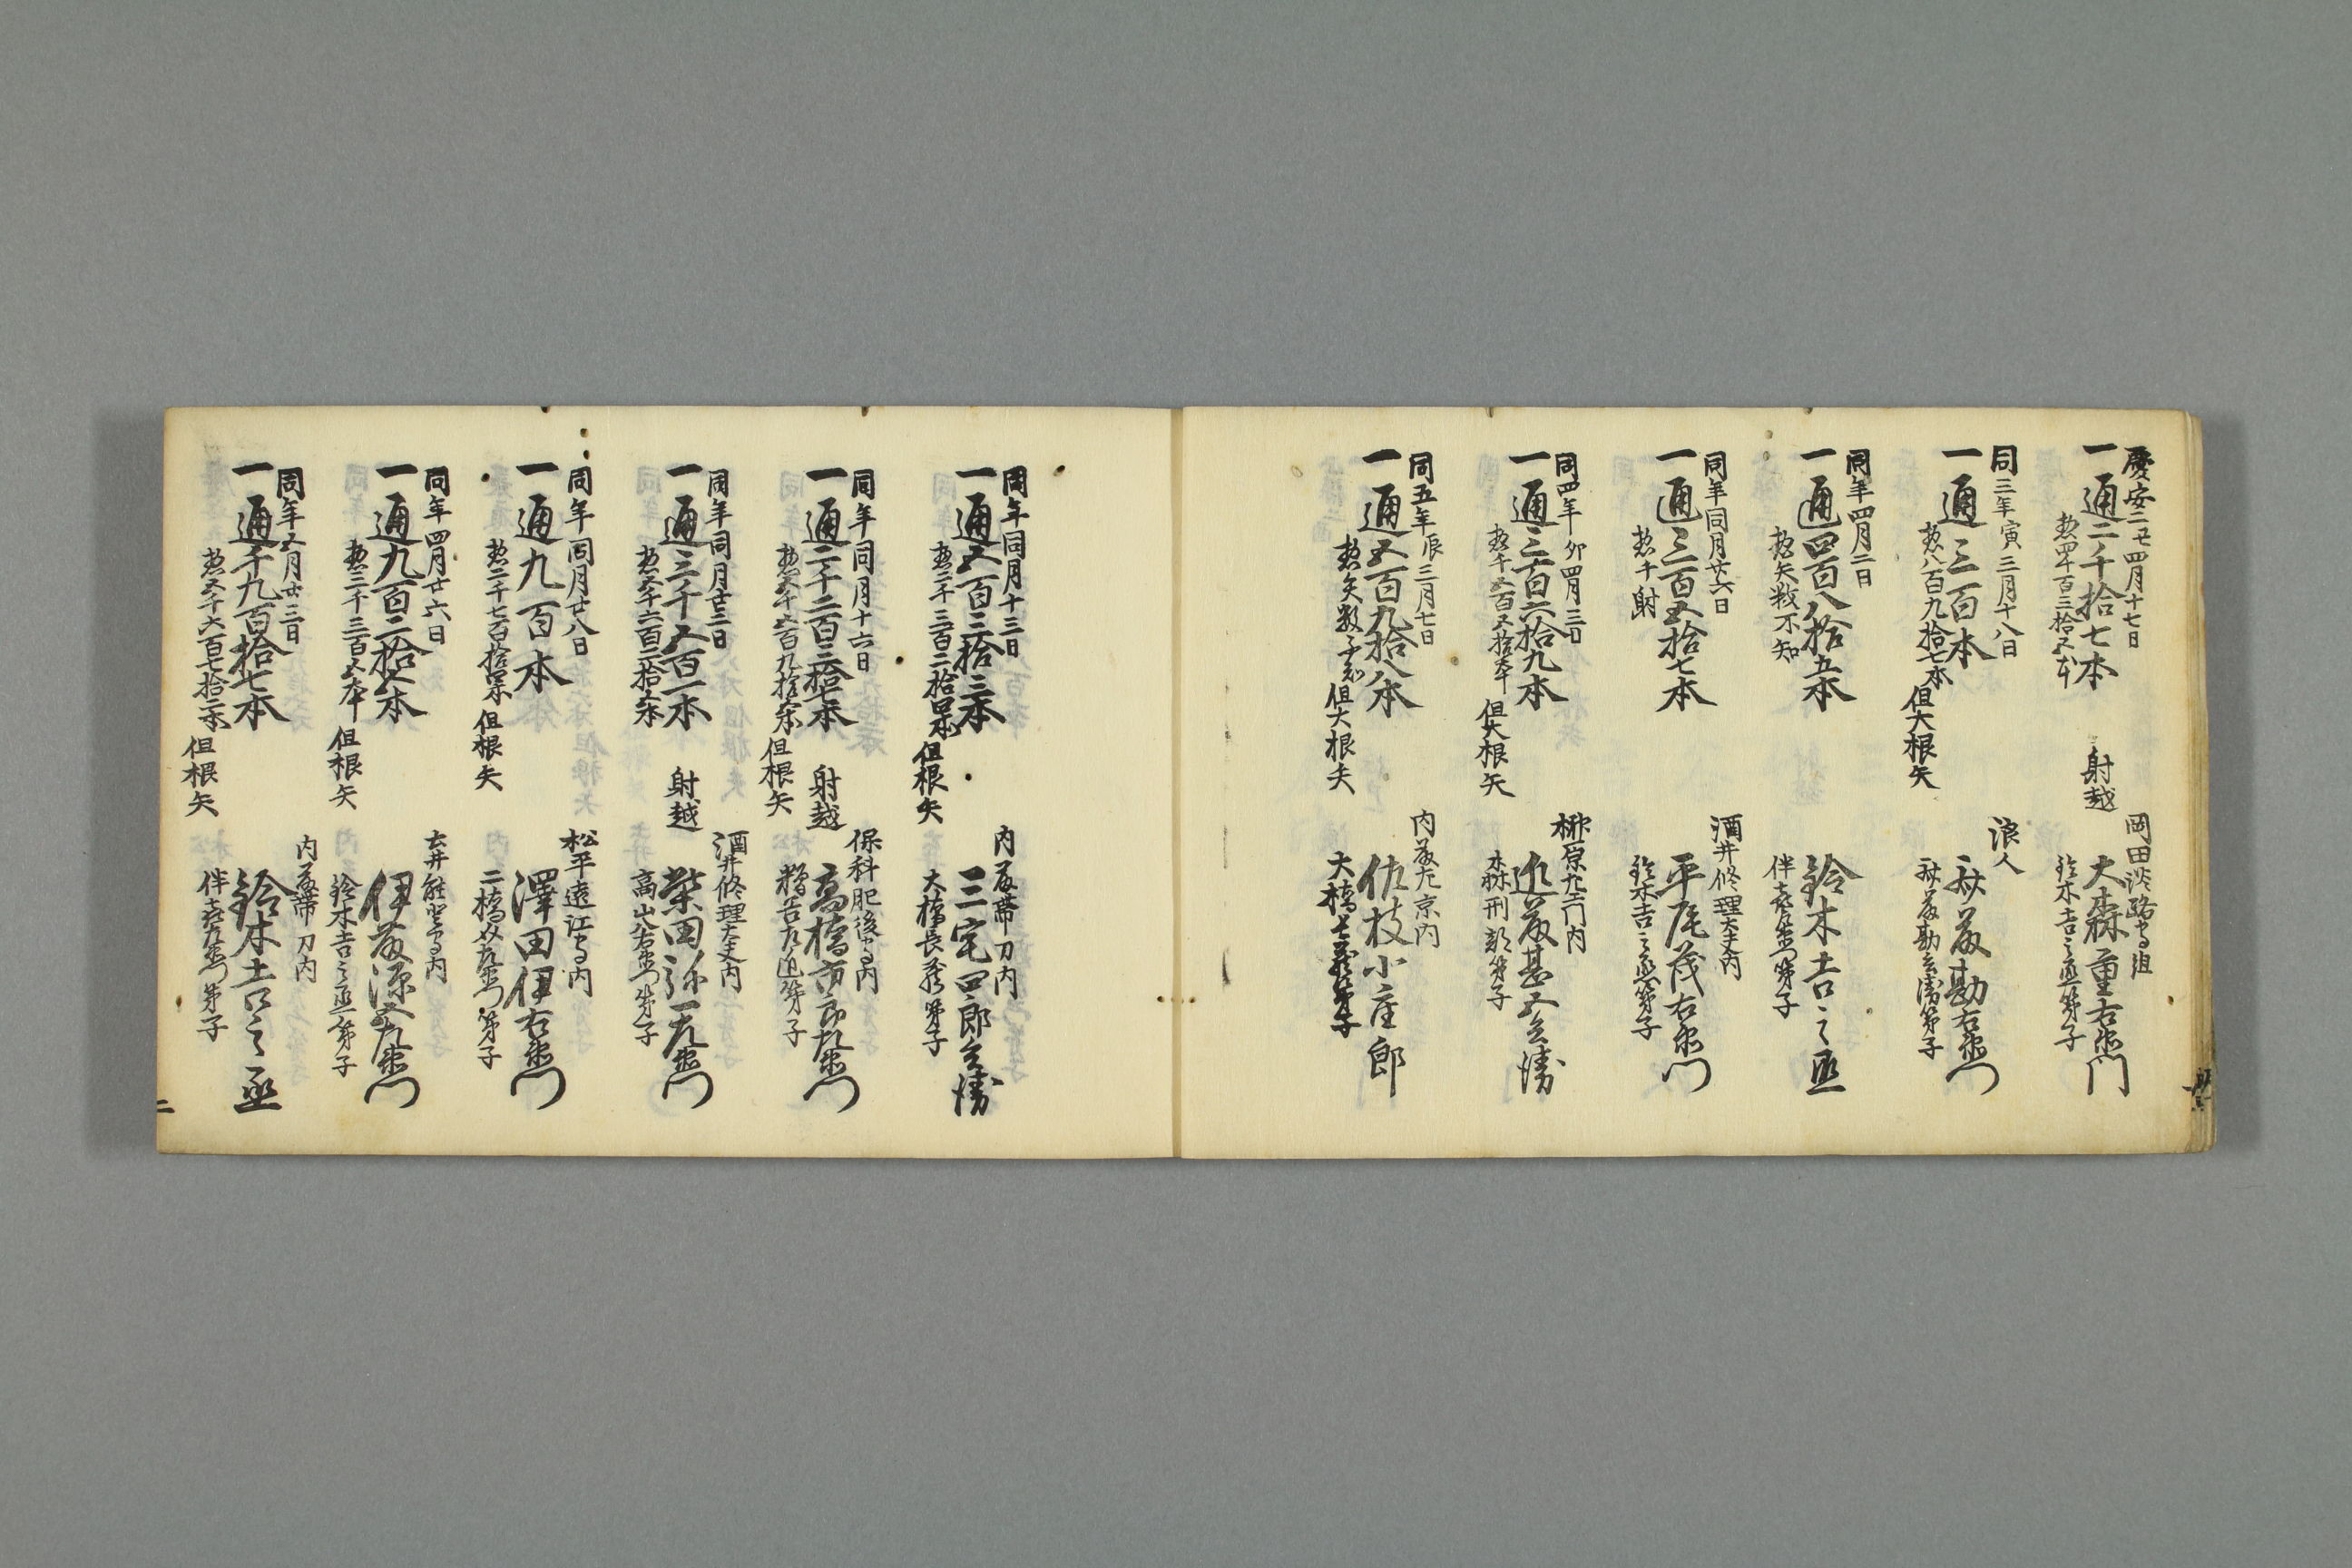 慶安二丑四月十七日
一通二千拾七本 射越
惣四千百三拾五本
岡田淡路守組
大森重右衛門
鈴木吉之丞弟子
同三年寅三月十八日
一通三百本
惣八百九拾七本 但大根矢
浪人
斎藤勘右衛門
斎藤勘兵衛弟子
同年四月二日
一通四百八拾五本
惣矢数不知
鈴木吉之丞
伴喜左衛門弟子
同年同月廿六日
一通三百五拾七本
惣千射
酒井修理大夫内
平尾茂右衛門
鈴木吉之丞弟子
同四年卯四月三日
一通三百六拾九本
惣千五百五拾本 但大根矢
榊原九右衛門内
近藤甚五兵衛
森刑部弟子
同五年辰三月七日
一通五百九拾八本
惣矢数不知 但大根矢
内藤左京内
佐枝小左郎
大橋長蔵弟子
同年同月十三日
一通五百三拾三本
惣二千三百二拾四本 但根矢
内藤帯刀内
三宅四郎兵衛
大橋長蔵弟子
同年同月十六日
一通二千二百三拾七本 射越
惣五千五百九拾六本 但根矢
保科肥後守内
高橋市郎左衛門
糟谷左近弟子
同年同月廿三日
一通三千五百一本 射越
惣五千六百三拾六本
酒井修理大夫内
柴田弥一左衛門
高山八右衛門弟子
同年同月廿八日
一通九百本
惣二千七百拾四本 但根矢
松平遠江守内
澤田伊右衛門
二橋弥左衛門弟子
同年四月廿六日
一通九百二拾六本
惣三千三百五本 但根矢
土井能登守内
伊藤源五左衛門
鈴木吉之丞弟子
同年五月廿三日
一通千九百拾七本
惣五千六百七拾二本 但根矢
内藤帯刀内
鈴木吉之丞
伴喜左衛門弟子
二